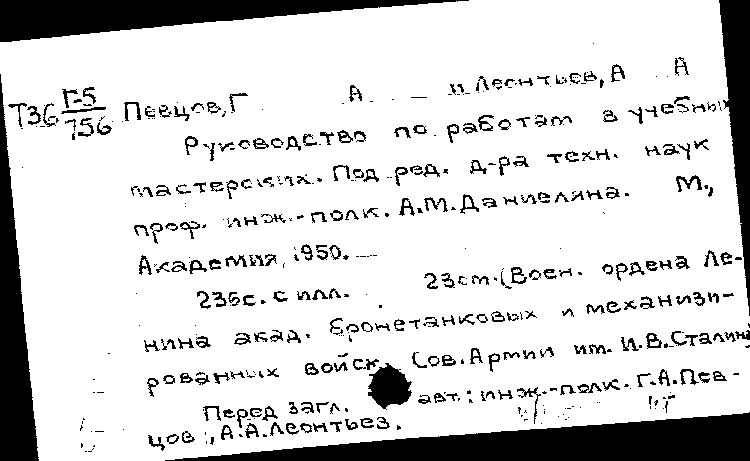 Т36 Г-5/756 Певцов, Г А и Леонтьев, А А
Руководство по работам в учебных
мастерских. Под ред. д-ра техн. наук
проф. инж.-полк. А.М.Даниеляна. М.,
Академия, 1950. —
236с. с илл. 23см. (Воен. ордена Ле-
нина акад. бронетанковых и механизи-
рованных войск Сов.Армии им. И.В.Сталина)
Перед загл. авт.: инж.-полк. Г.А.Пев-
цов, А.А.Леонтьев.